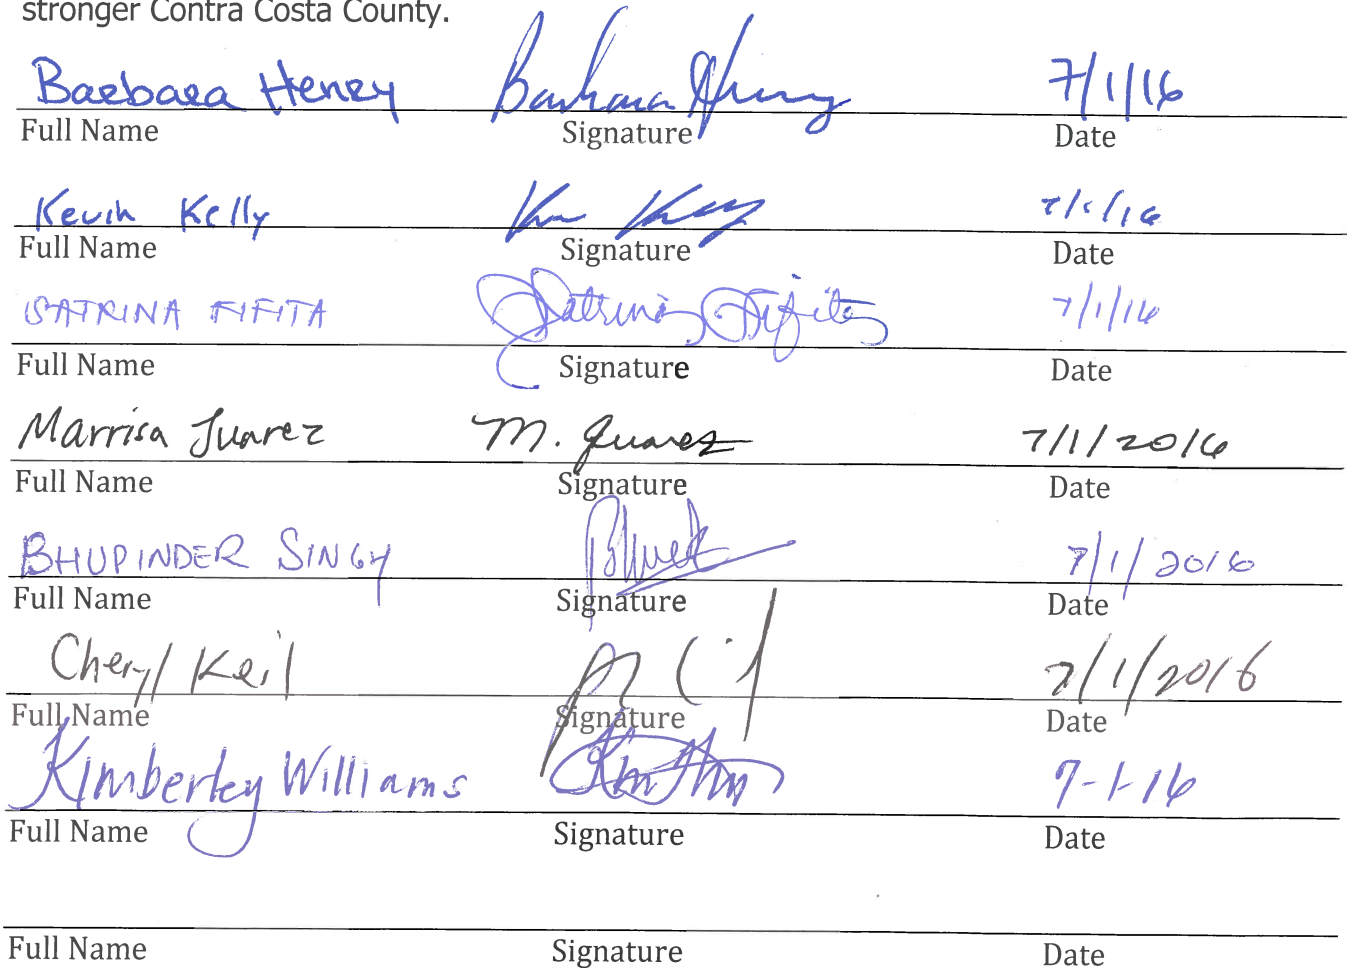 stronger Contra Costa County.
Barbara Henry Barbara Henry 7/1/16
Full Name Signature Date
Kevin Kelly 7/1/16
Full Name Signature Date
SATRINA FIFITA Satrina Fifita 7/1/16
Full Name Signature Date
Marrisa Juarez M. Juarez 7/1/2016
Full Name Signature Date
BHUPINDER SINGH 7/1/2016
Full Name Signature Date
Cheryl Keil 7/1/2016
Full Name Signature Date
Kimberley Williams 7-1-16
Full Name Signature Date
Full Name Signature Date